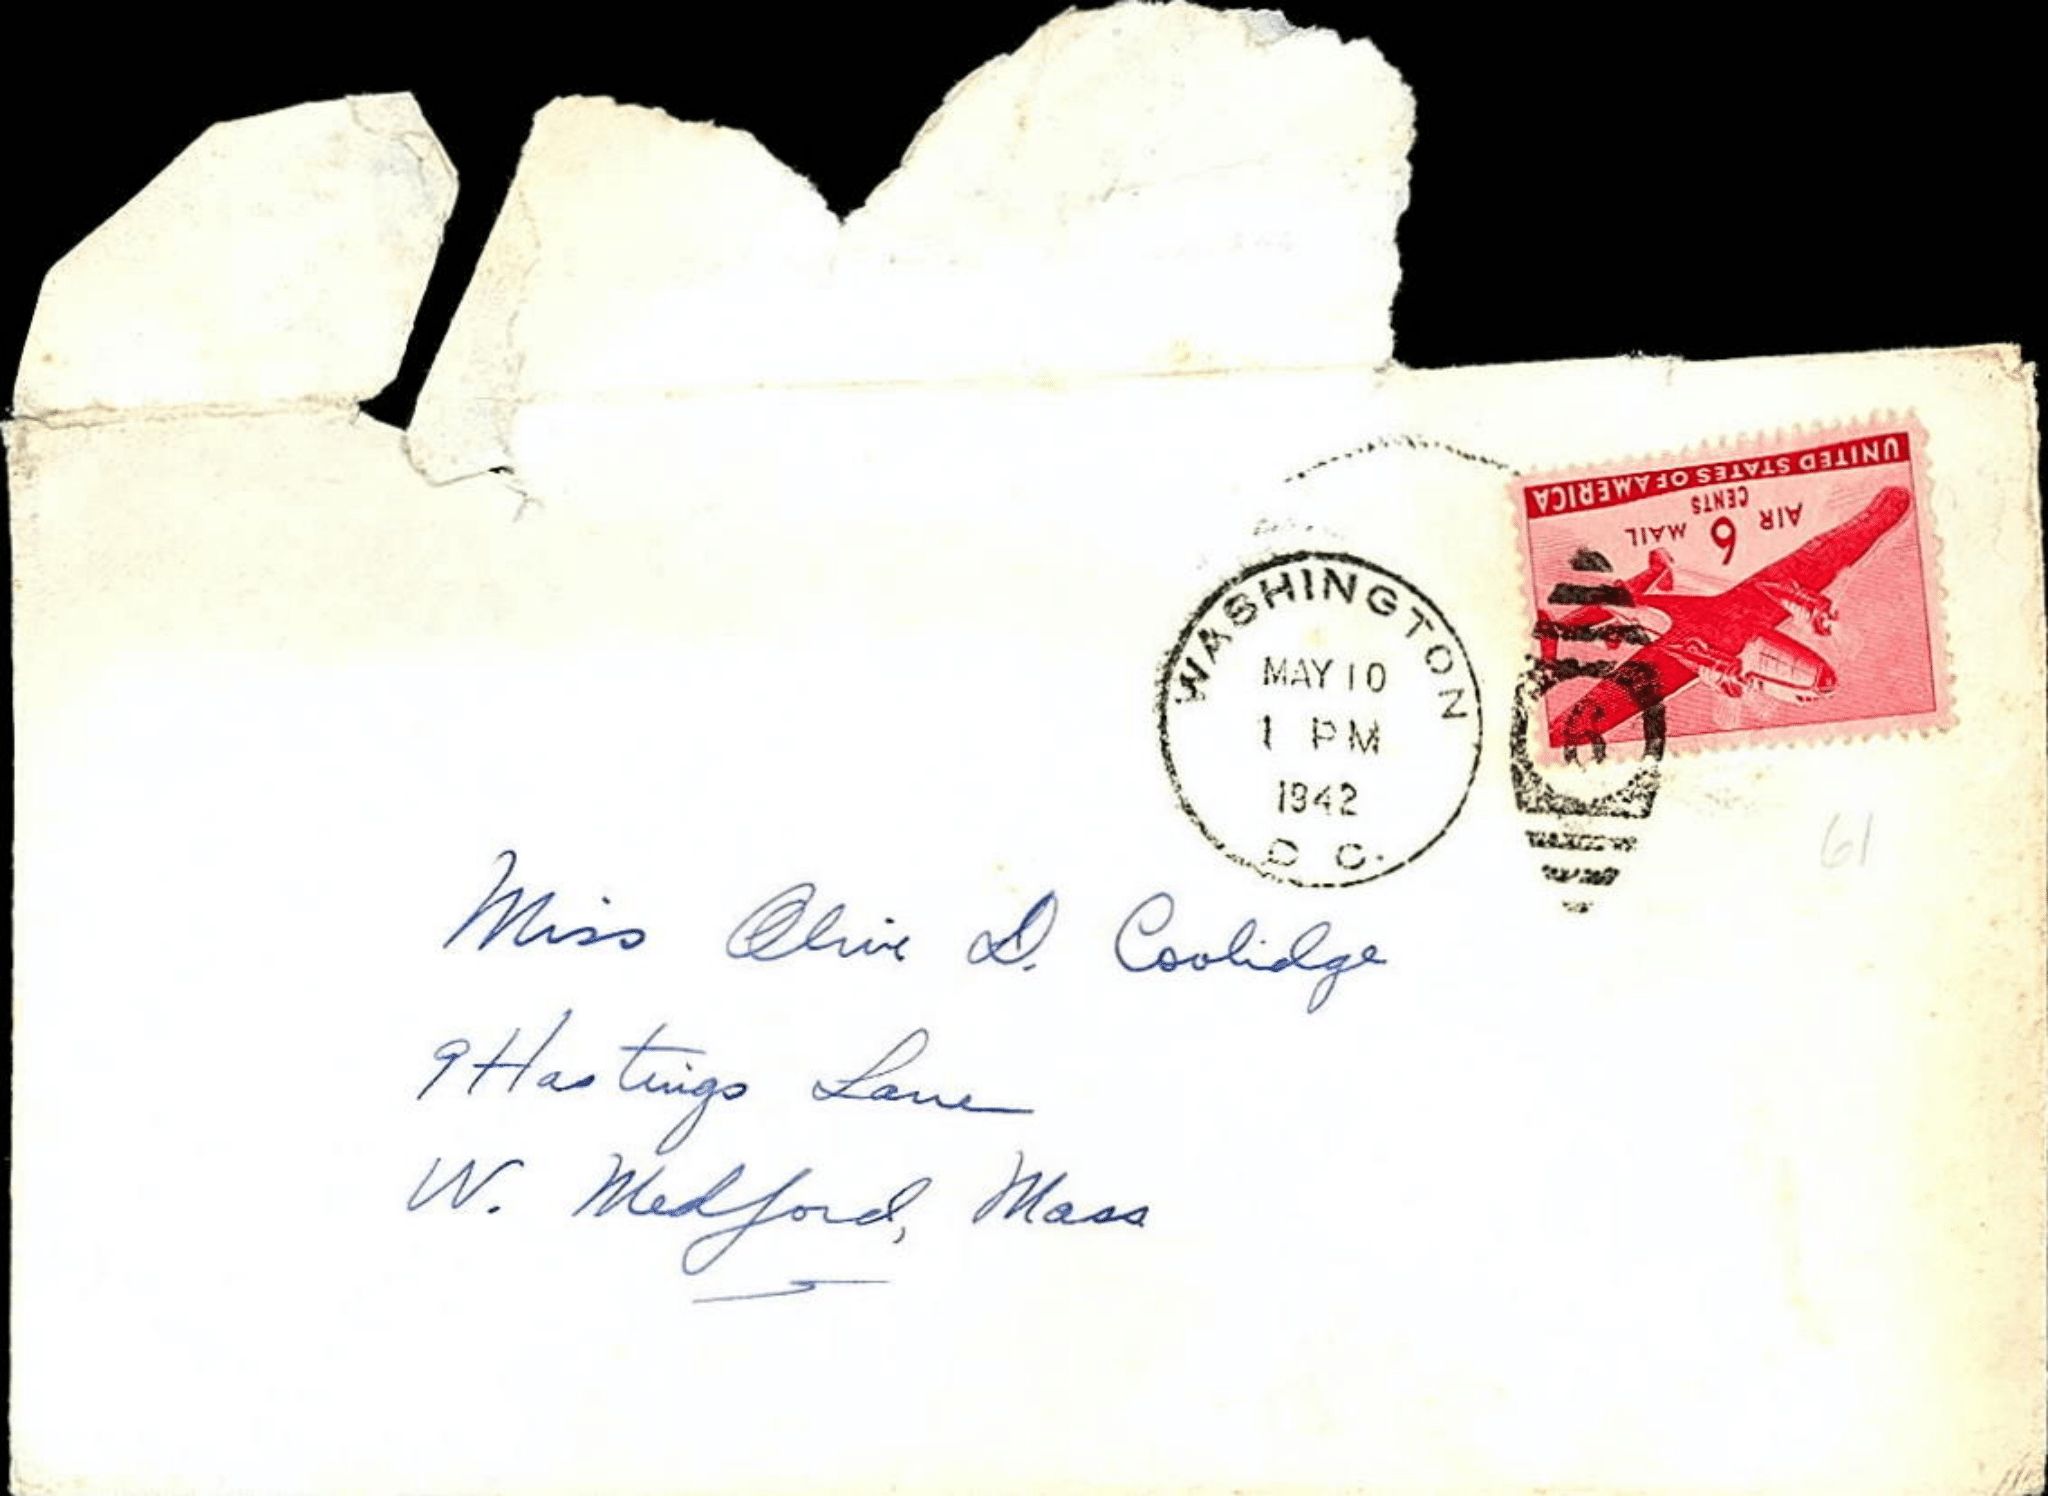 UNITED STATES OF AMERICA
CENTS
AIR 6 MAIL
WASHINGTON
MAY 10
1 PM
1942
D C.
6
61
Miss Olive D. Coolidge
9 Hastings Lane
W. Medford, Mass